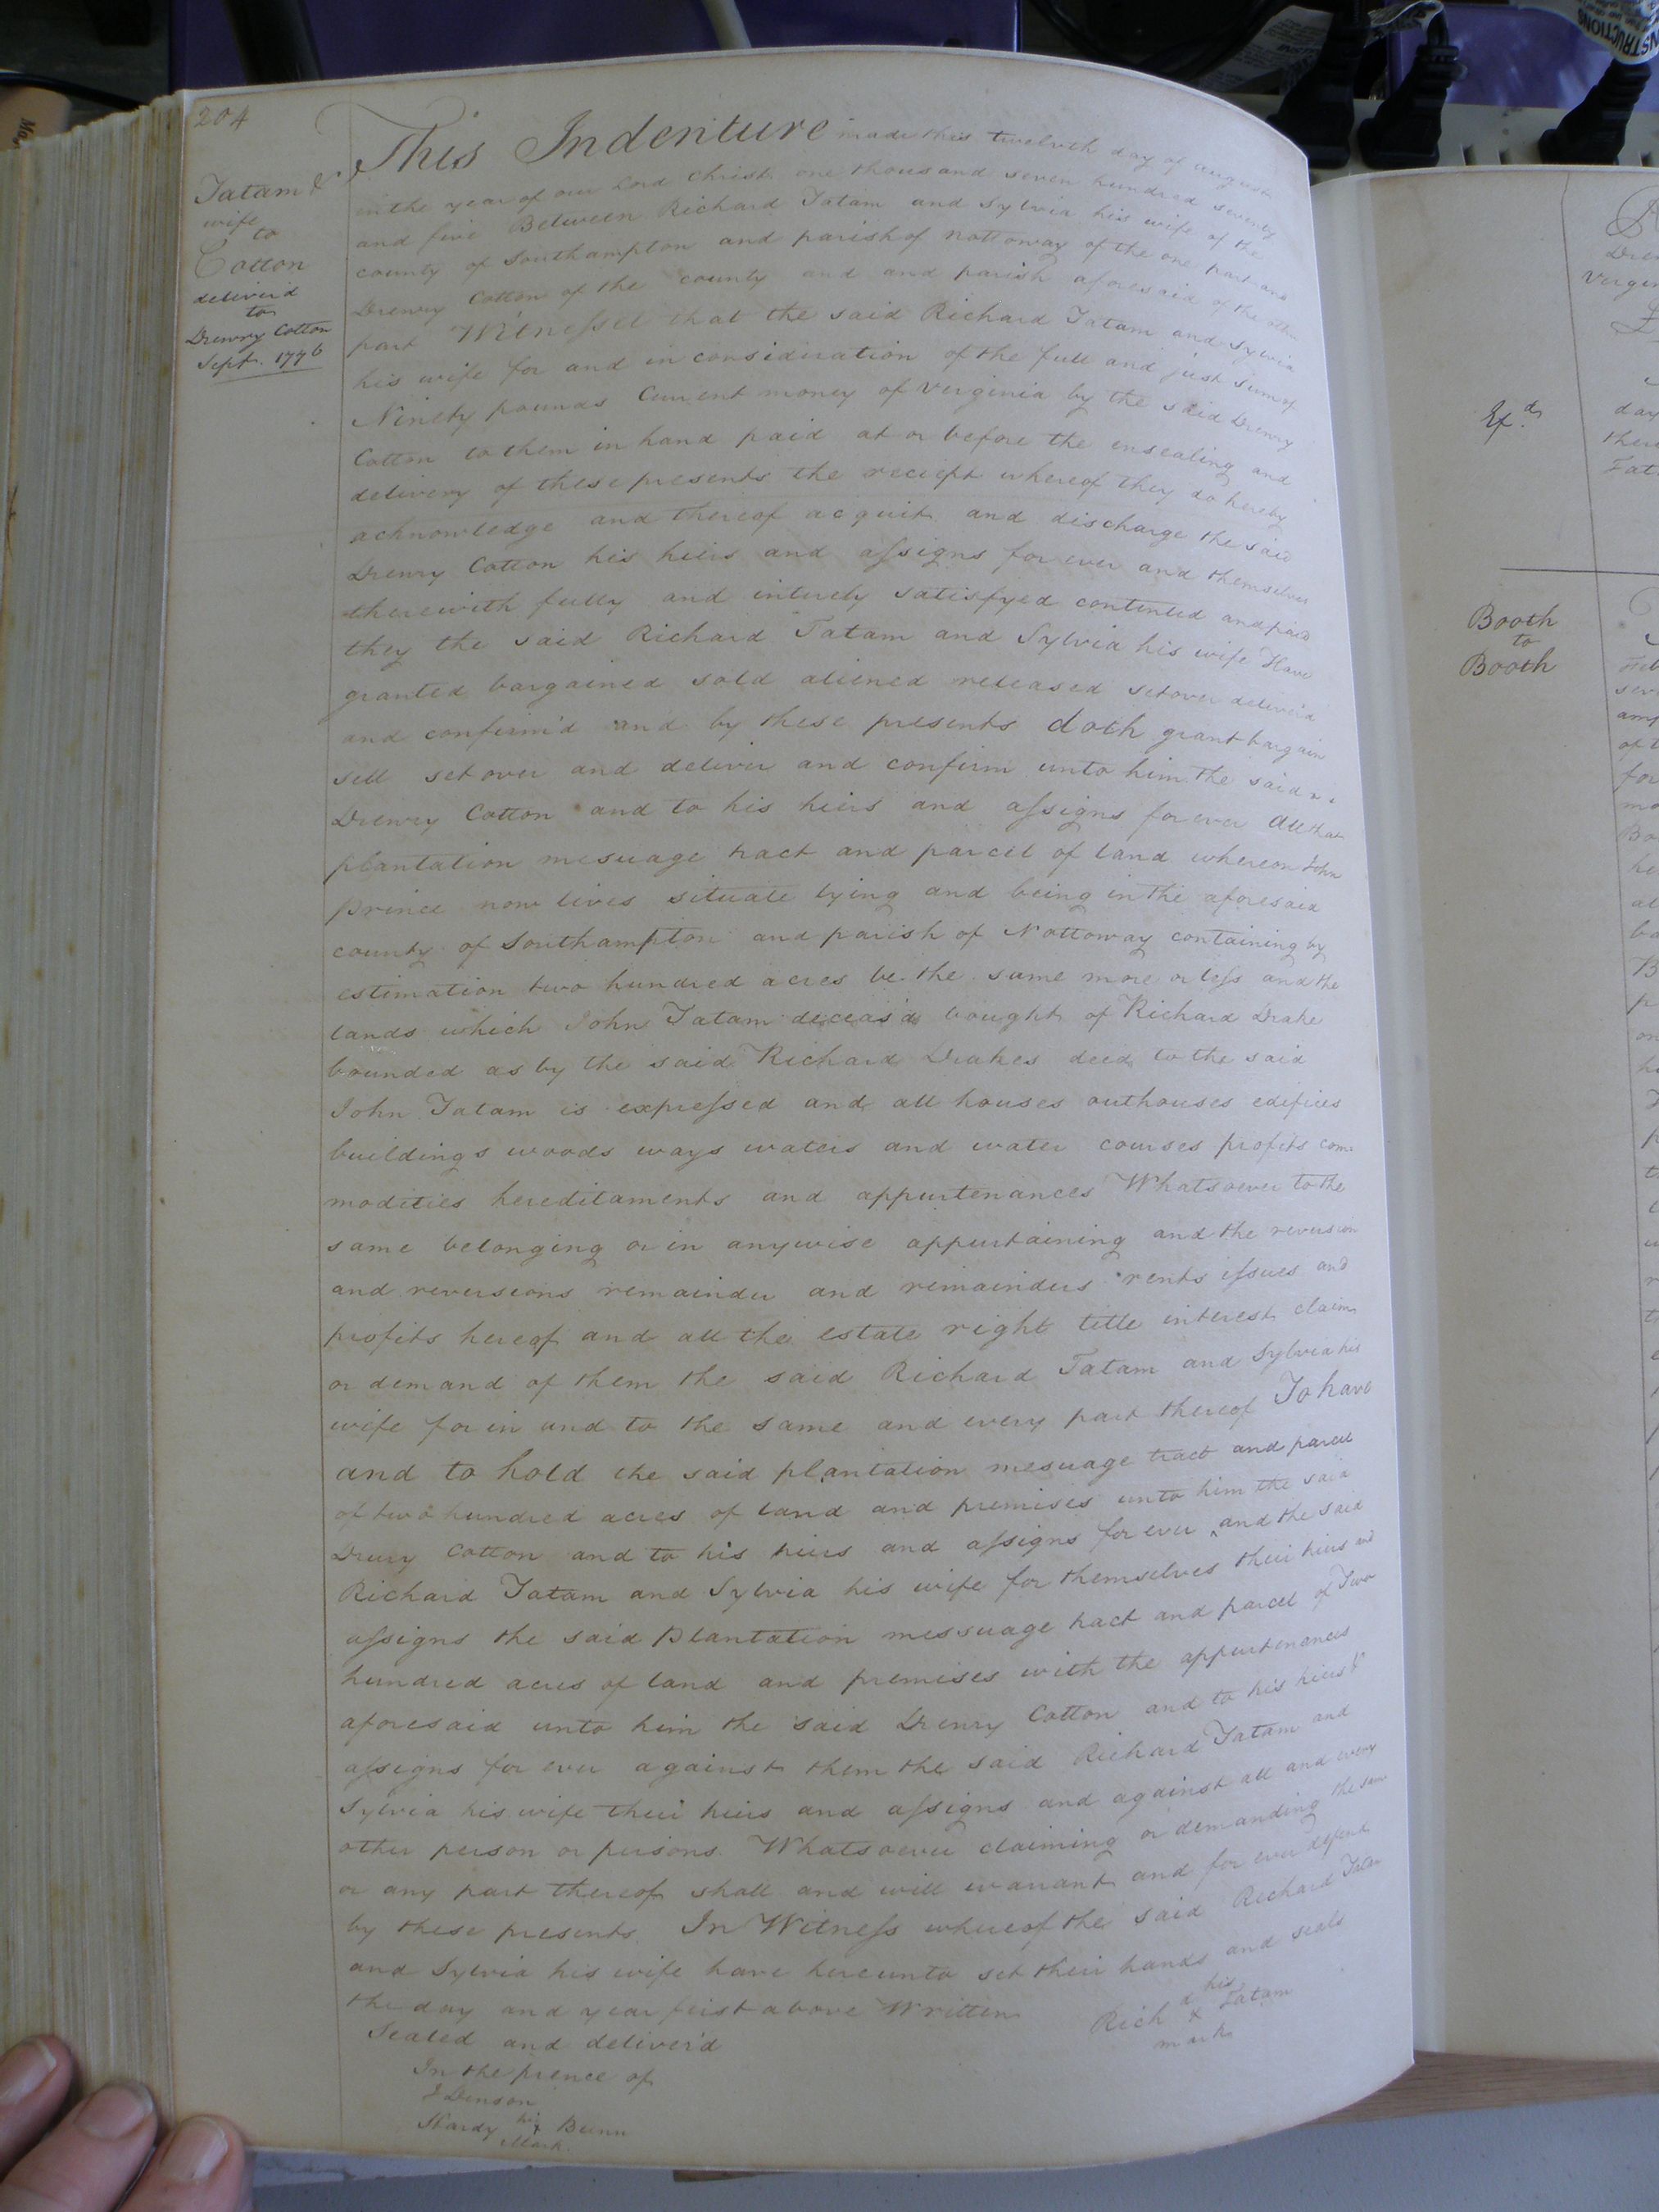 204
Tatam &
wife
to
Cotton
deliver'd
to
Drewry Cotton
Sept. 1776
This Indenture made this twelveth day of august
in the year of our Lord Christ one thousand seven hundred seventy
and five Between Richard Tatam and Sylvia his wife of the
county of Southampton and parish of Nottoway of the one part and
Drewry Cotton of the county and and parish aforesaid of the other
part Witnesset that the said Richard Tatam and Sylvia
his wife for and in consideration of the full and just sum of
Ninety pounds Current money of Verginia by the said Drewry
Cotton to them in hand paid at or before the ensealing and
delivery of these presents the reciept whereof they do hereby
acknowledge and thereof acquit and discharge the said
Drewry Cotton his heirs and assigns for ever and themselves
therewith fully and intirely satisfyed contented and paid
they the said Richard Tatam and Sylvia his wife Have
granted bargained sold aliened released setover deliver'd
and confirm'd and by these presents doth grant bargain
sell set over and deliver and confirm unto him the said
Drewry Cotton and to his heirs and assigns forever all that
plantation mesuage tract and parcel of land whereon John
Prince now lives situate lying and being in the aforesaid
county of Southampton and parish of Nottoway containing by
estimation two hundred acres be the same more or less and the
lands which John Tatam deceas'd bought of Richard Drake
bounded as by the said Richard Drakes deed to the said
John Tatam is expressed and all houses outhouses edifices
buildings woods ways waters and water courses profits com
modities hereditaments and appurtenances Whatsoever to the
same belonging or in anywise appurtaining and the reversion
and reversions remainder and remainders rents issues and
profits hereof and all the estate right title interest claim
or demand of them the said Richard Tatam and Sylvia his
wife for in and to the same and every part thereof To have
and to hold the said plantation mesuage tract and parcel
of two hundred acres of land and premises unto him the said
Drury Cotton and to his heirs and assigns for ever and the said
Richard Tatam and Sylvia his wife for themselves their heirs and
assigns the said Plantation messuage tract and parcel of Two
hundred acres of land and premises with the appurtenances
aforesaid unto him the said Drewry Cotton and to his heirs &
assigns for ever against them the said Richard Tatam and
Sylvia his wife their heirs and assigns and against all and every
other person or persons Whatsoever claiming or demanding the same
or any part thereof shall and will warrant and for ever defend
by these presents In Witness whereof the said Richard Tatam
and Sylvia his wife have hereunto set their hands and seals
the day and year first above Written
his
Rich d x Tatam
mark
Sealed and deliver'd
In the prence of
J Denson
Hardy his x Bunn
Mark
Ex.d
Booth
to
Booth